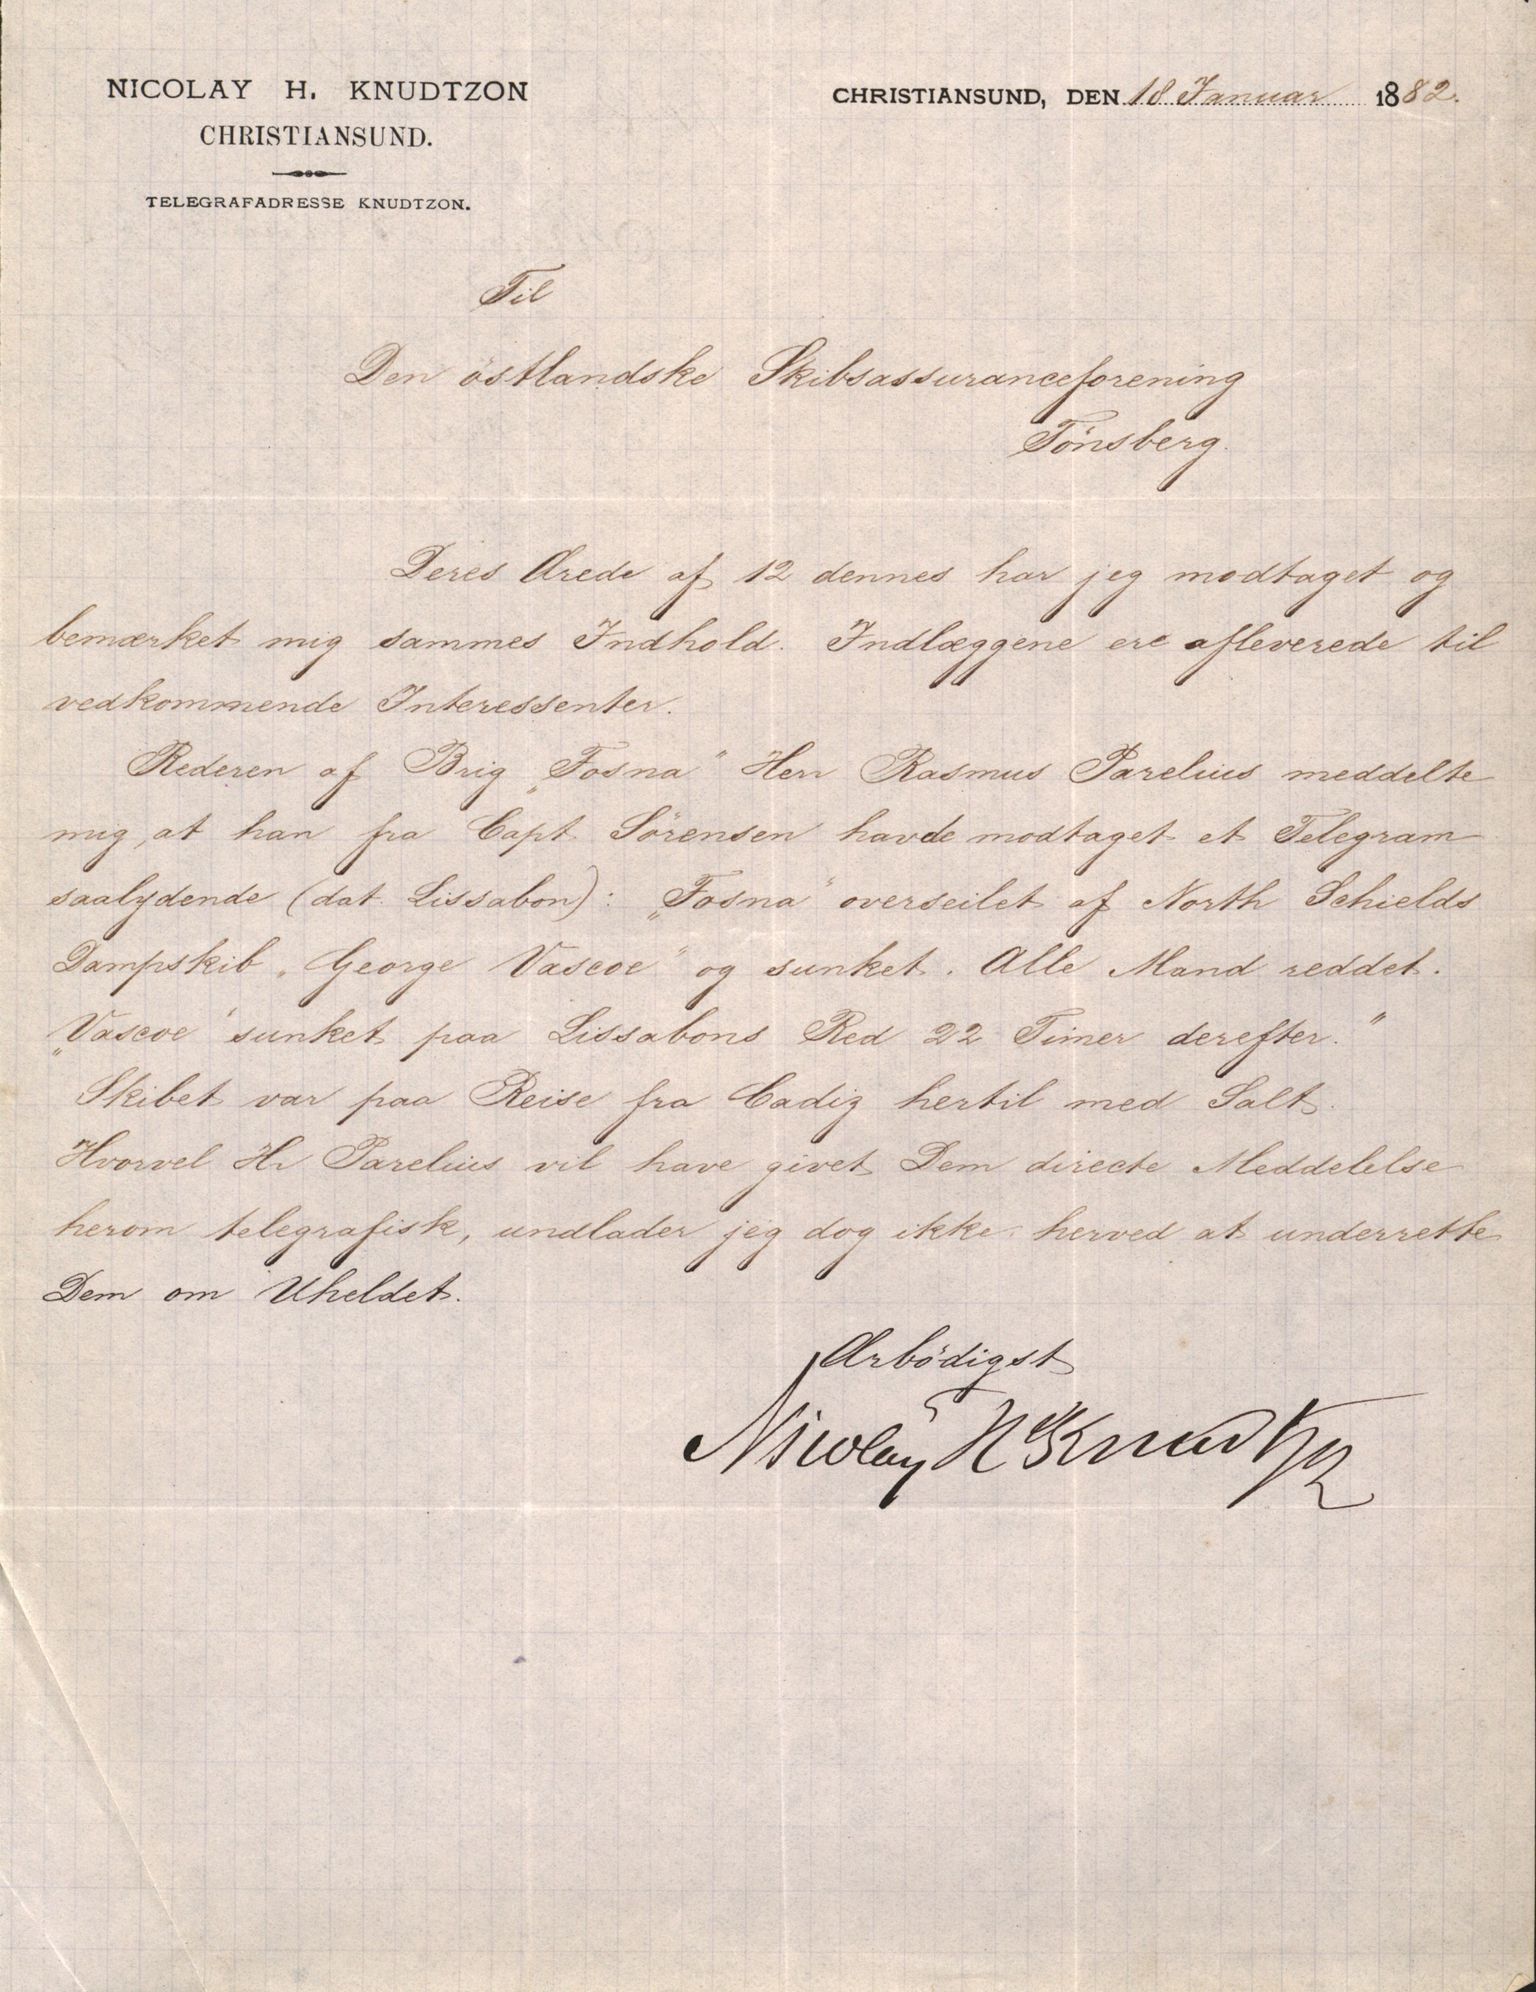 NICOLAY H. KNUDTZON
CHRISTIANSUND.
TELEGRAFADRESSE KNUDTZON.
CHRISTIANSUND, DEN 18 Januar 1882.
Til
Den östlandske Skibsassuranceforening
Tönsberg.
Deres Ærede af 12 dennes har jeg modtaget og
bemærket mig sammes Indhold. Indlæggene ere afleverede til
vedkommende Interessenter.
Rederen af Brig „Fosna" Herr Rasmus Parelius meddelte
mig, at han fra Capt Sörensen havde modtaget et Telegram
saalydende (dat. Lissabon): „Fosna" overseilet af North Schields
Dampskib „George Vascoe" og sunket. Alle Mand reddet.
„Vascoe" sunket paa Lissabons Red 22 Timer derefter."
Skibet var paa Reise fra Cadiz hertil med Salt.
Hvorvel Hr Parelius vil have givet Dem directe Meddelelse
herom telegrafisk, undlader jeg dog ikke herved at underrette
Dem om Uheldet.
Ærbödigst
Nicolay H Knudtzon